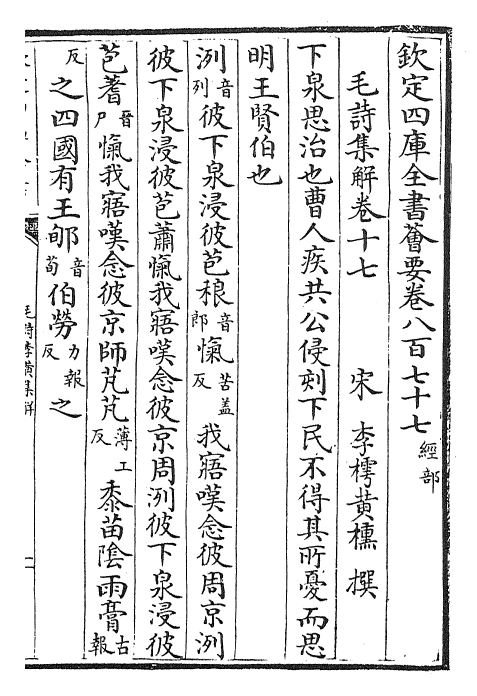 欽定四庫全書薈要卷八百七十七經部
毛詩集解卷十七 宋 李樗黃櫄 撰
下泉思治也曹人疾共公侵刻下民不得其所憂而思
明王賢伯也
洌音列彼下泉浸彼苞稂音郎愾苦蓋反我寤嘆念彼周京洌
彼下泉浸彼苞蕭愾我寤嘆念彼京周洌彼下泉浸彼
苞蓍音尸愾我寤嘆念彼京師芃芃薄工反黍苗陰雨膏古報
反之四國有王郇音荀伯勞力報反之
毛詩李黃集解